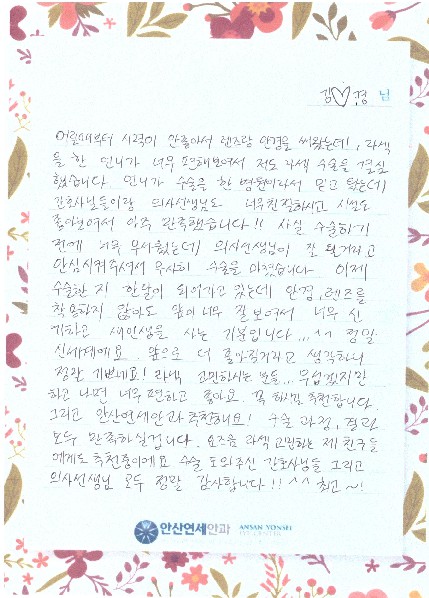 김♡경 님
어릴때부터 시력이 안좋아서 렌즈랑 안경을 써왔는데!, 라섹
을 한 언니가 너무 편해보여서 저도 라섹 수술을 결심
했습니다 언니가 수술을 한 병원이라서 믿고 왔는데
간호사님들이랑 의사선생님도 너무친절하시고 시설도
좋아보여서 아주 만족했습니다!! 사실 수술하기
전에 너무 무서웠는데 의사선생님이 잘 될거라고
안심시켜주셔서 무사히 수술을 마쳤습니다 이제
수술한 지 한달이 되어가고 있는데 안경, 렌즈를
착용하지 않아도 앞이 너무 잘 보여서 너무 신
기하고 새인생을 사는 기분입니다... ^^ 정말
신세계예요. 앞으로 더 좋아질거라고 생각하니
정말 기쁘네요! 라섹 고민하시는 분들... 무섭겠지만
하고 나면 너무 편하고 좋아요. 꼭 하시길 추천합니다.
그리고 안산연세안과 추천해요! 수술 과정, 결과
모두 만족하실겁니다. 요즈음 라섹 고민하는 제 친구들
에게도 추천중이에요 수술 도와주신 간호사님들 그리고
의사선생님 모두 정말 감사합니다!! ^^ 최고~!
안산연세안과 ANSAN YONSEI